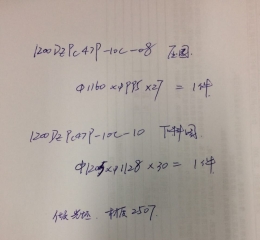 1200DZPC47P-10C-08 压圈
Φ1160×Φ995×27 = 1件
1200DZPC47P-10C-10 下料图
Φ1205×Φ1128×30 = 1件
材质2507.